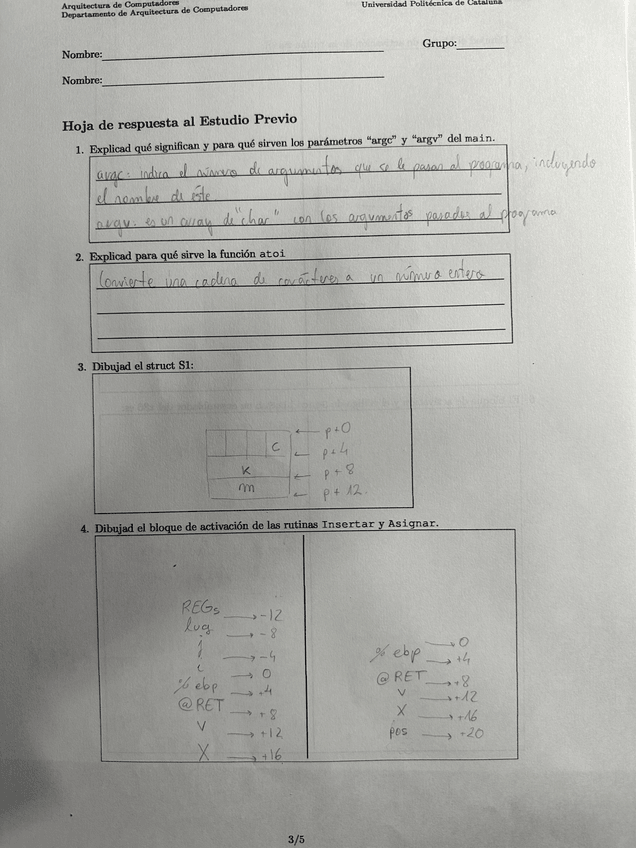 Arquitectura de Computadores
Universidad Politécnica de Cataluña
Departamento de Arquitectura de Computadores
Grupo:
Nombre:
Nombre:
Hoja de respuesta al Estudio Previo
1. Explicad qué significan y para qué sirven los parámetros "argc" y "argv" del main.
argc: indica el número de argumentos que se le pasan al programa, incluyendo
el nombre de éste.
argv: es un array de "char" con los argumentos pasados al programa
2. Explicad para qué sirve la función atoi
Convierte una cadena de carácteres a un número entero
3. Dibujad el struct S1:
C
K
m
← p+0
← p+4
← p+8
← p+12.
4. Dibujad el bloque de activación de las rutinas Insertar y Asignar.
REGs → -12
lug → -8
j → -4
i → 0
% ebp → +4
@RET → +8
V → +12
X → +16
→ 0
% ebp → +4
@RET → +8
V → +12
X → +16
pos → +20
3/5